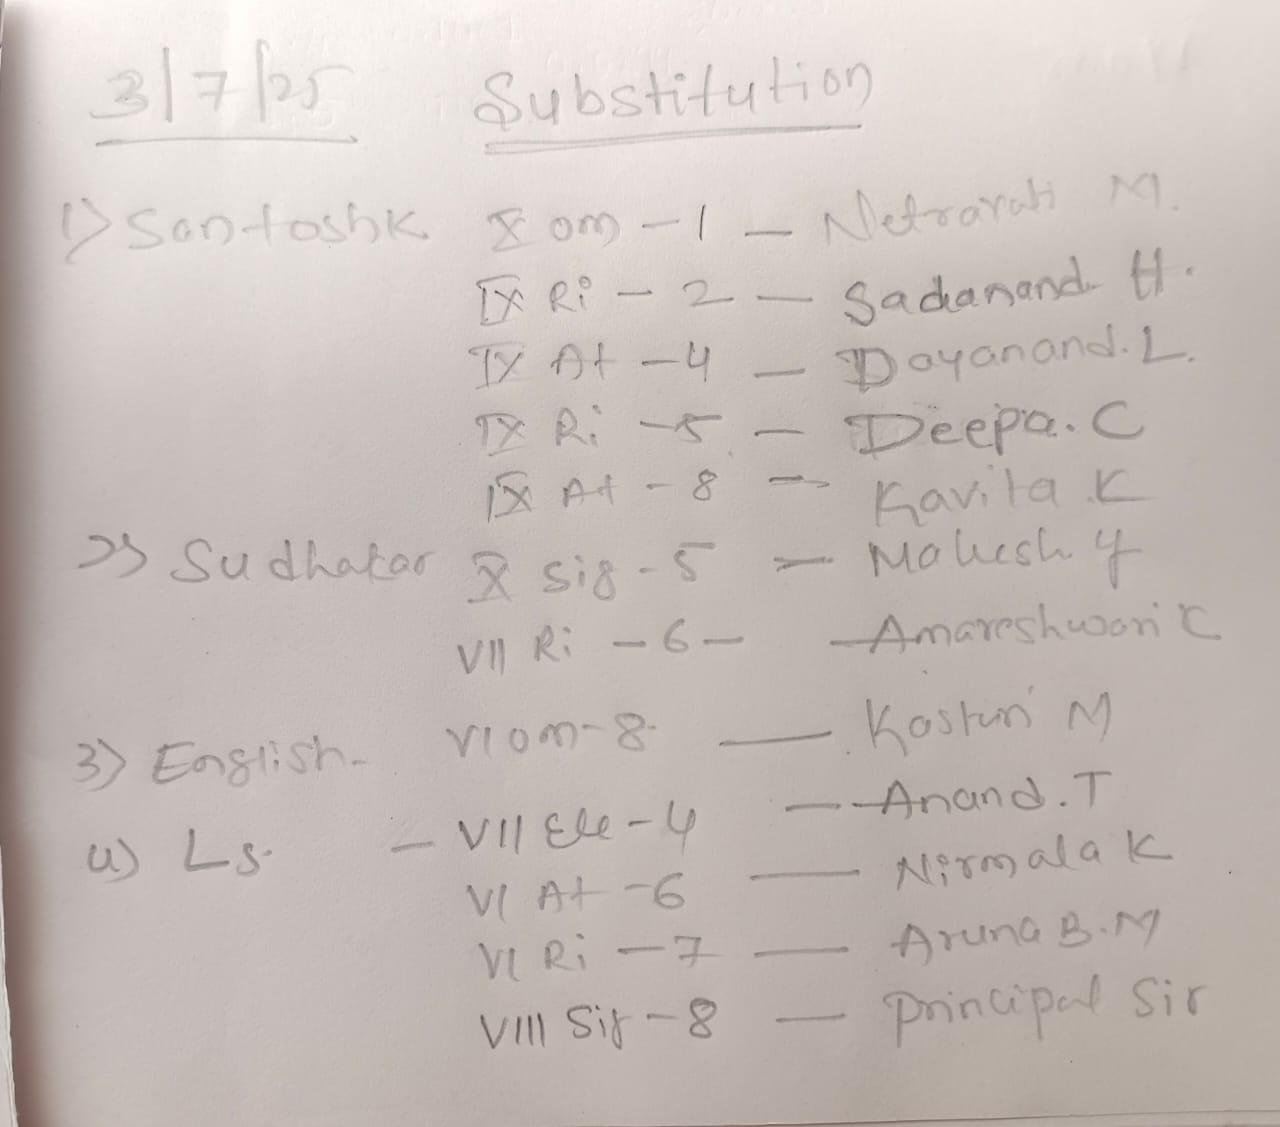 3/7/25 Substitution
1) Santosh K X om - 1 - Netravati M.
IX Ri - 2 - Sadanand H.
IX At - 4 - Dayanand. L.
IX Ri - 5 - Deepa. C
IX At - 8 - Kavita K
2) Sudhakar X Sig - 5 - Mahesh Y
VII Ri - 6 - Amareshwari C
3) English - VI om - 8 - Kasturi M
4) Ls. - VII Ele - 4 - Anand. T
VI At - 6 - Nirmala K
VI Ri - 7 - Aruna B. M
VIII Sig - 8 - Principal Sir